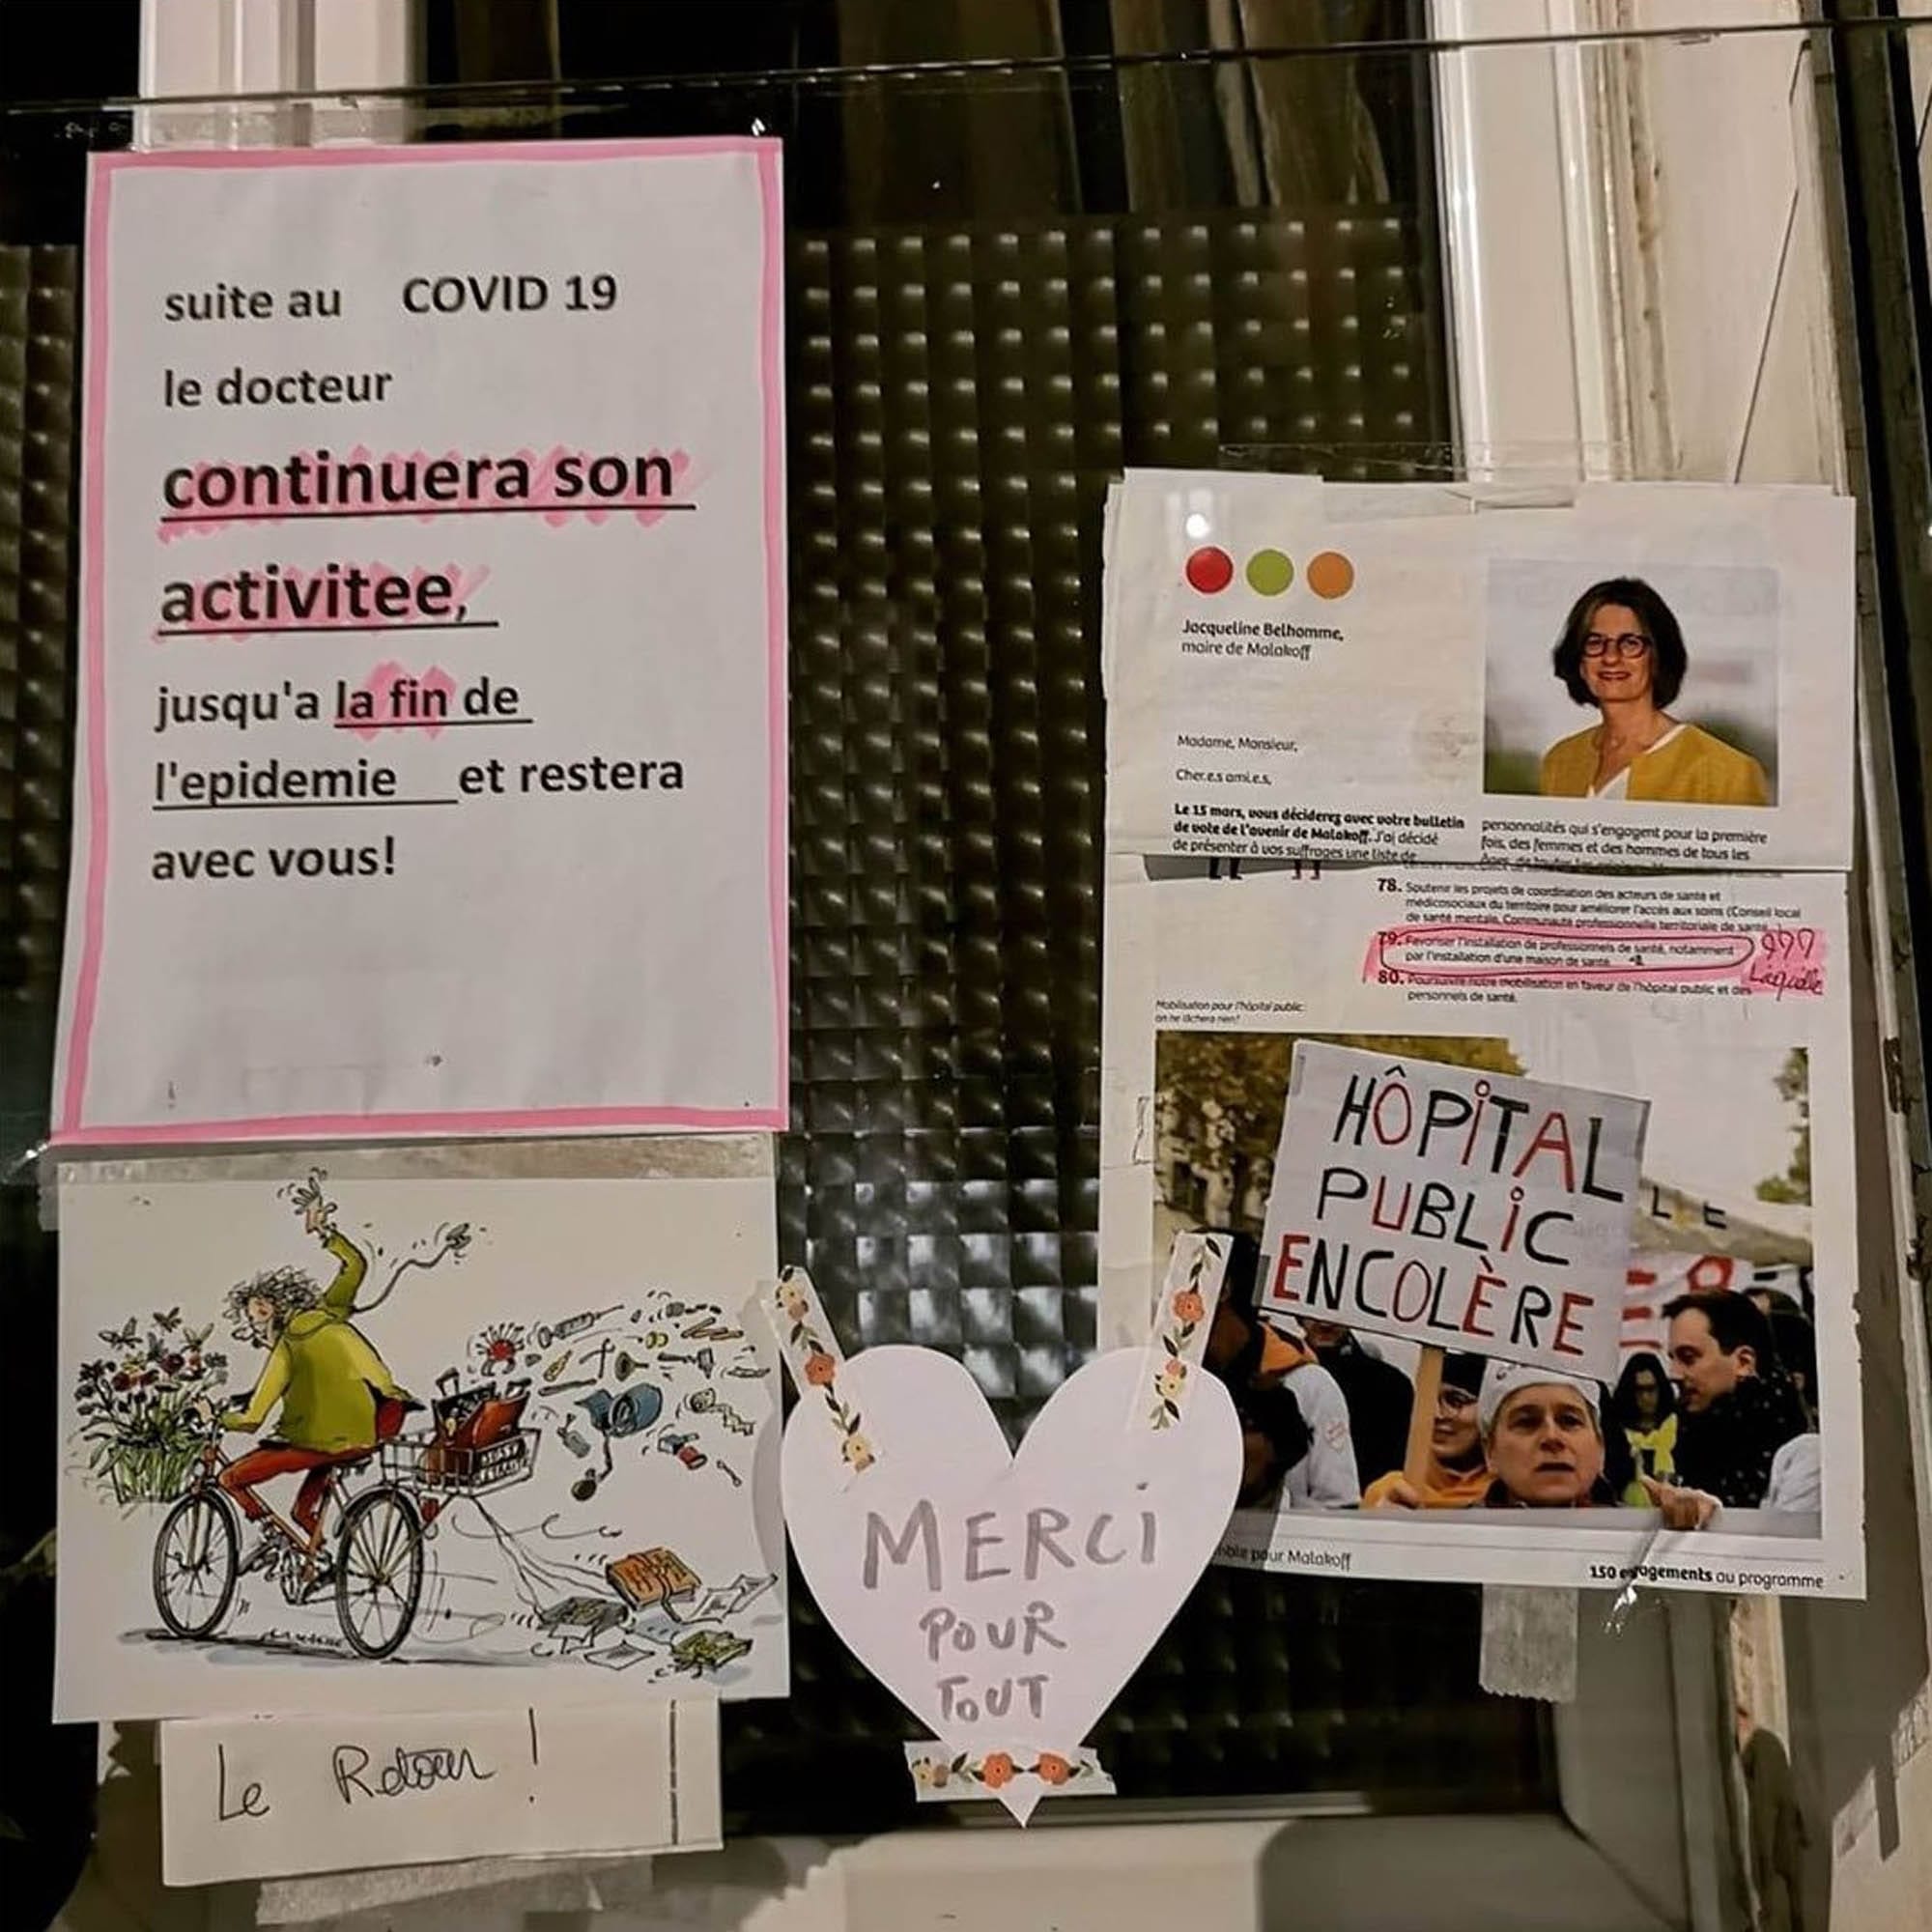 suite au COVID 19
le docteur
continuera son
activitee,
jusqu'a la fin de
l'epidemie et restera
avec vous!
Le Retour !
MERCi
POUR
TOUT
Jacqueline Belhomme,
maire de Malakoff
Madame, Monsieur,
Cher.e.s ami.e.s,
Le 15 mars, vous déciderez avec votre bulletin
de vote de l'avenir de Malakoff. J'ai décidé
de présenter à vos suffrages une liste de
personnalités qui s'engagent pour la première
fois, des femmes et des hommes de tous les
78. Soutenir les projets de coordination des acteurs de santé et
médicosociaux du territoire pour améliorer l'accès aux soins (Conseil local
de santé mentale, Communauté professionnelle territoriale de santé
79. Favoriser l'installation de professionnels de santé, notamment
par l'installation d'une maison de santé.
???
Laquelle
80. Poursuivre notre mobilisation en faveur de l'hôpital public et des
personnels de santé.
Mobilisation pour l'hôpital public:
on ne lâchera rien!
HÔPiTAL
PUBLiC
EN COLÈRE
pour Malakoff
150 engagements au programme